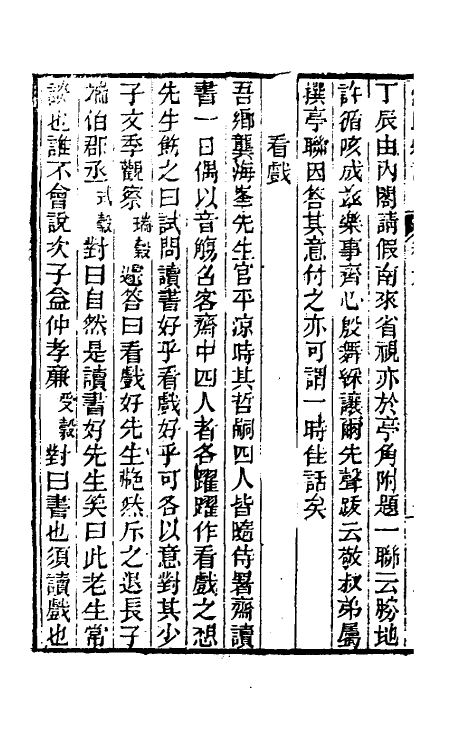 丁辰由內閣請假南來省視亦於亭角附題一聯云勝地
許循陔成茲樂事齊心殷舞綵讓爾先聲跋云敬叔弟屬
撰亭聯因答其意付之亦可謂一時佳話矣
看戲
吾鄉龔海峯先生官平涼時其哲嗣四人皆隨侍署齋讀
書一日偶以音觴召客齋中四人者各躍躍作看戲之想
先生飭之曰試問讀書好乎看戲好乎可各以意對其少
子文季觀察瑞穀遽答曰看戲好先生艴然斥之退長子
端伯郡丞式穀對曰自然是讀書好先生笑曰此老生常
談也誰不會說次子益仲孝廉受穀對曰書也須讀戲也